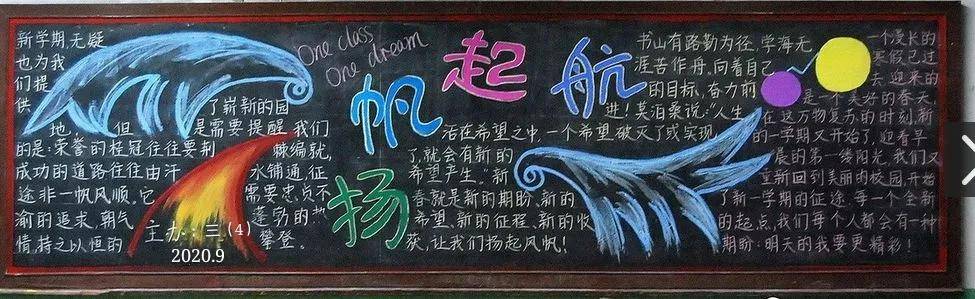 新学期,无疑
也为我
们提
供
了崭新的园
地,但是需要提醒我们
的是:荣誉的桂冠往往要荆棘编就,
成功的道路往往由汗水铺通,征
途非一帆风顺。它需要忠贞不
渝的追求,朝气蓬勃的热
情,持之以恒的攀登。
主办:三(4)
2020.9
One class
One dream
扬帆起航
书山有路勤为径,学海无
涯苦作舟。向着自己
的目标,奋力前
进!莫泊桑说:“人生
活在希望之中,一个希望破灭了或实现
了,就会有新的
希望产生。”新
春就是新的期盼、新的
希望、新的征程、新的收
获,让我们扬起风帆!
一个漫长的
寒假已过
去,迎来的
是一个美好的春天,
在这万物复苏的时刻,新
的一学期又开始了,迎着早
晨的第一缕阳光,我们又
重新回到美丽的校园,开始
了新一学期的征途,每一个全新
的起点,我们每个人都会有一种
期盼:明天的我要更精彩!